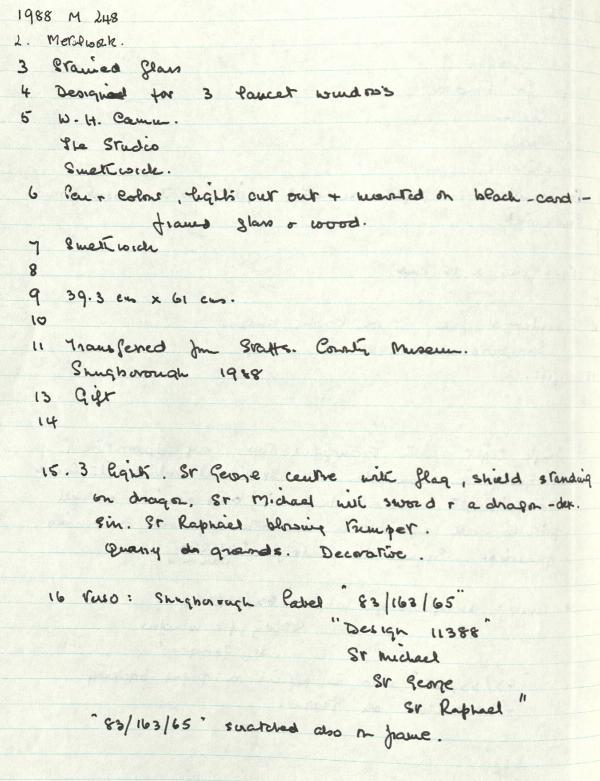 1988 M 248
2. Metalwork.
3 Stained Glass
4 Designed for 3 lancet windows
5 W.H. Camm.
The Studio
Smethwick.
6 Pen + colour, lights cut out + mounted on black-card -
framed glass & wood.
7 Smethwick
8
9 39.3 cms x 61 cms.
10
11 Transferred from Staffs. County Museum.
Shugborough 1988
13 Gift
14
15. 3 lights. St George centre with flag, shield standing
on dragon, St Michael with sword + a dragon -
St Raphael blowing trumpet.
Quarry grounds. Decorative.
16 Verso: Shugborough label "83/163/65"
"Design 11388"
St Michael
St George
St Raphael"
"83/163/65" scratched also on frame.